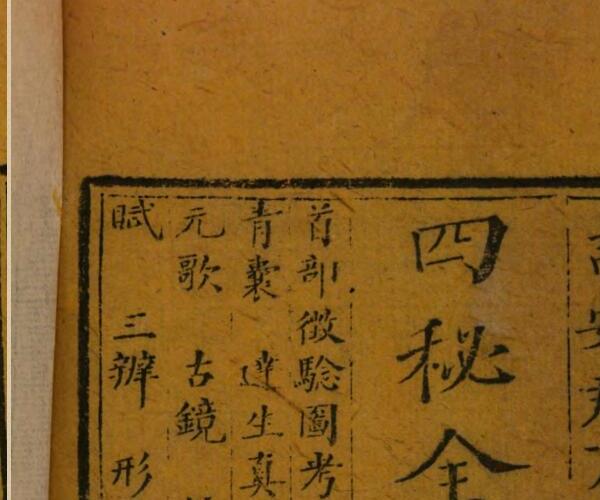 四秘全
首部徵驗圖考
青囊 達生真
元歌 古鏡
賦 三辨 形